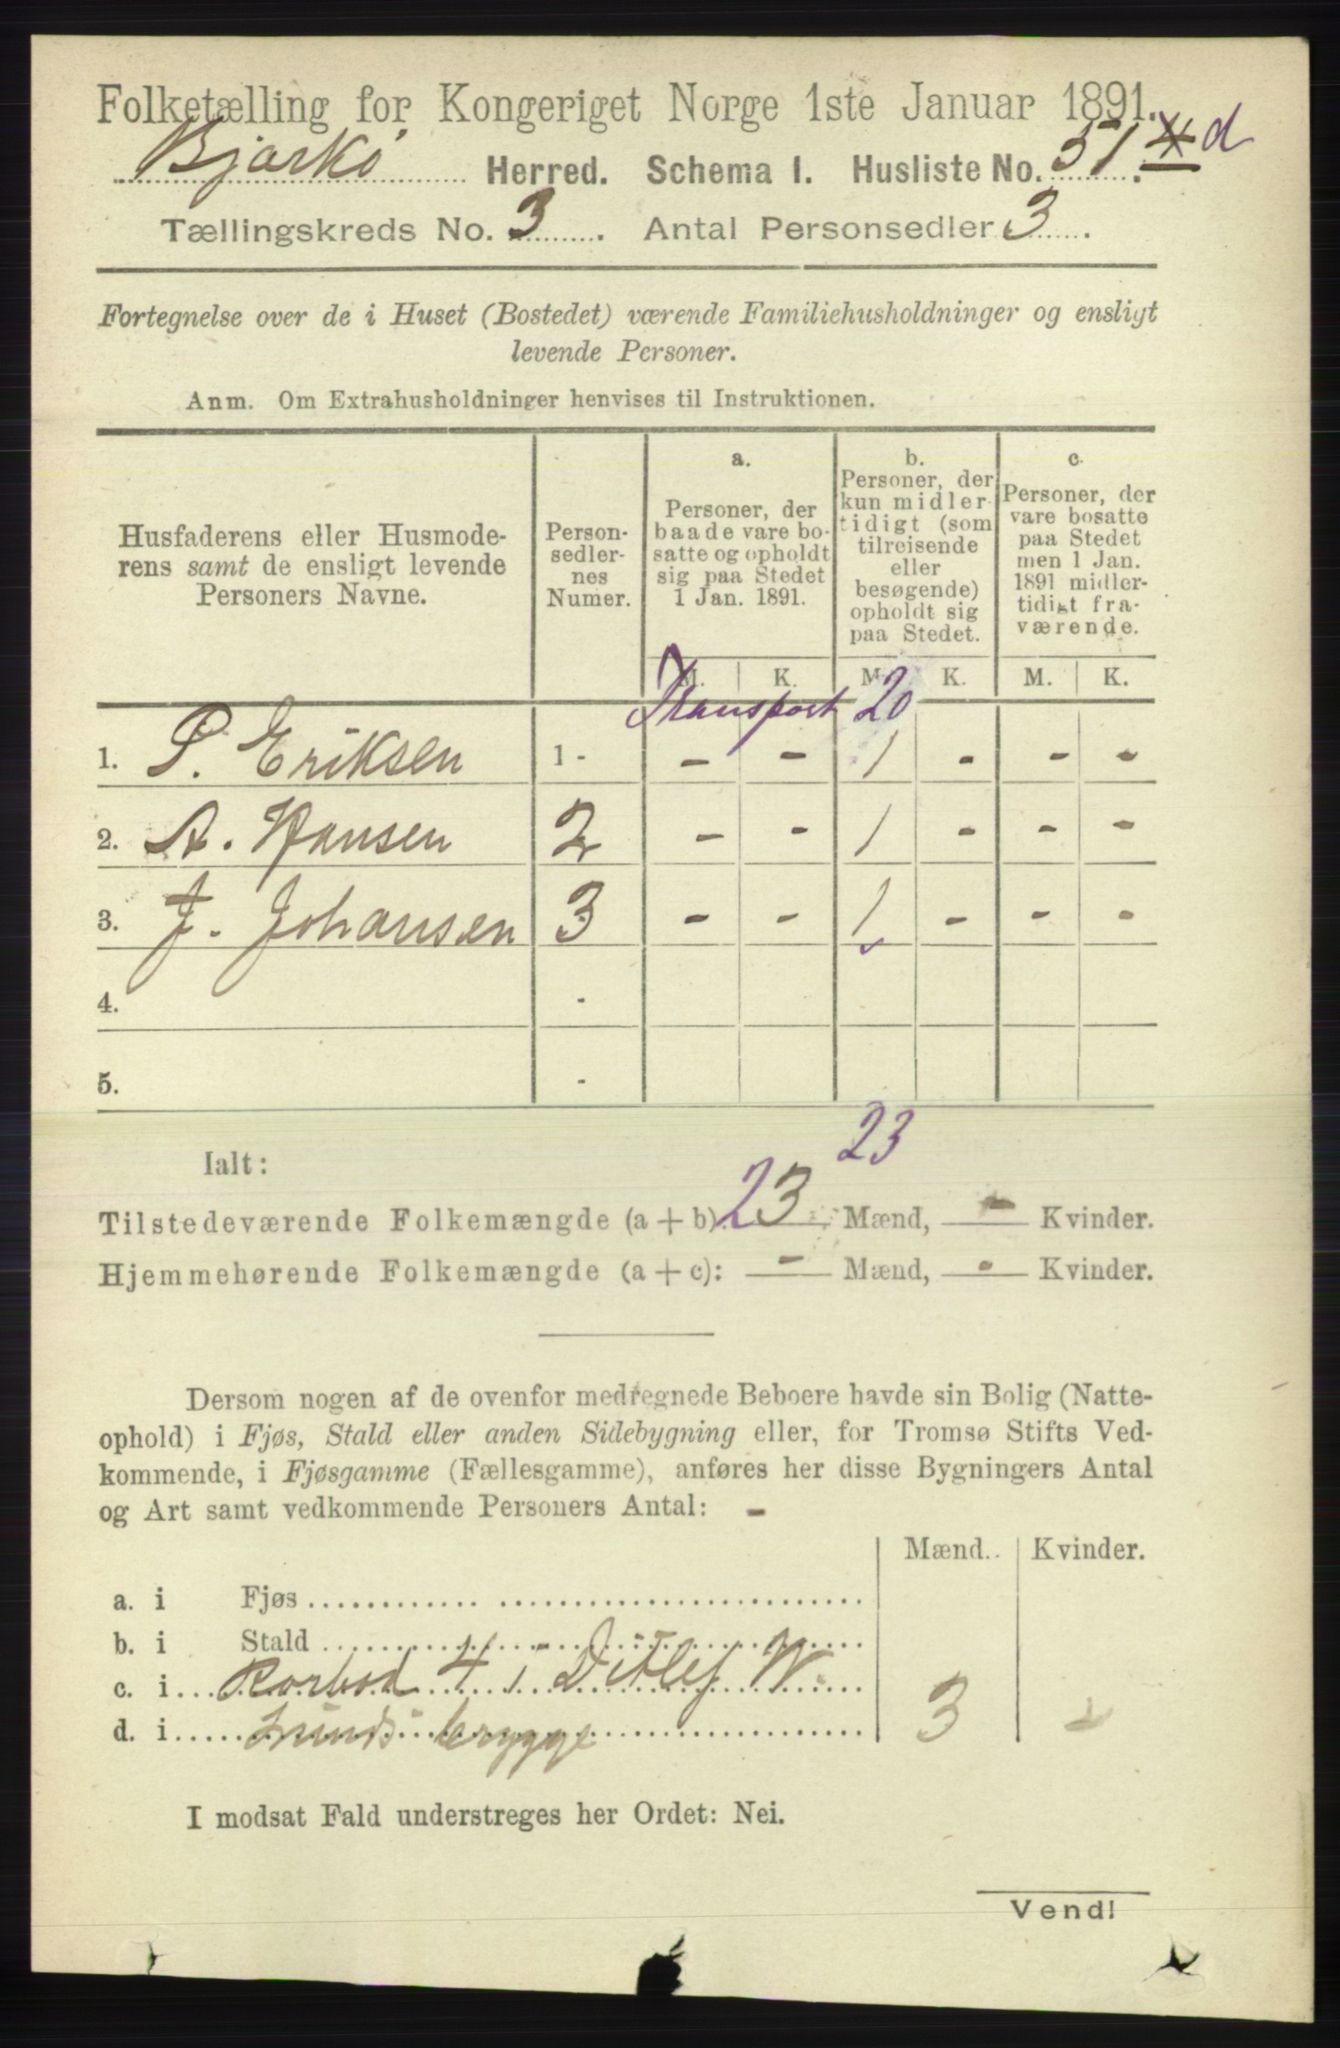 Folketælling for Kongeriget Norge 1ste Januar 1891.
Bjarkö Herred. Schema 1. Husliste No. 51 d
Tællingskreds No. 3. Antal Personsedler 3.
Fortegnelse over de i Huset (Bostedet) værende Familiehusholdninger og ensligt
levende Personer.
Anm. Om Extrahusholdninger henvises til Instruktionen.
Husfaderens eller Husmode-
rens samt de ensligt levende
Personers Navne.
Person-
sedler-
nes
Numer.
a.
Personer, der
baade vare bo-
satte og opholdt
sig paa Stedet
1 Jan. 1891.
b.
Personer, der
kun midler-
tidigt (som
tilreisende
eller
besøgende)
opholdt sig
paa Stedet.
c.
Personer, der
vare bosatte
paa Stedet
men 1 Jan.
1891 midler-
tidigt fra-
værende.
M. K. M. K. M. K.
Transport 20
1. P. Eriksen 1 - - - 1 - - -
2. A. Hansen 2 - - 1 - - -
3. J. Johansen 3 - - 1 - - -
4. -
5. -
23
Ialt:
Tilstedeværende Folkemængde (a + b): 23 Mænd, - Kvinder.
Hjemmehørende Folkemængde (a + c): - Mænd, - Kvinder.
Dersom nogen af de ovenfor medregnede Beboere havde sin Bolig (Natte-
ophold) i Fjøs, Stald eller anden Sidebygning eller, for Tromsø Stifts Ved-
kommende, i Fjøsgamme (Fællesgamme), anføres her disse Bygningers Antal
og Art samt vedkommende Personers Antal: -
Mænd. Kvinder.
a. i Fjøs
b. i Stald
c. i Rorbod 4 i Ditlef W. 3 -
d. i Lunds brygge
I modsat Fald understreges her Ordet: Nei.
Vend!